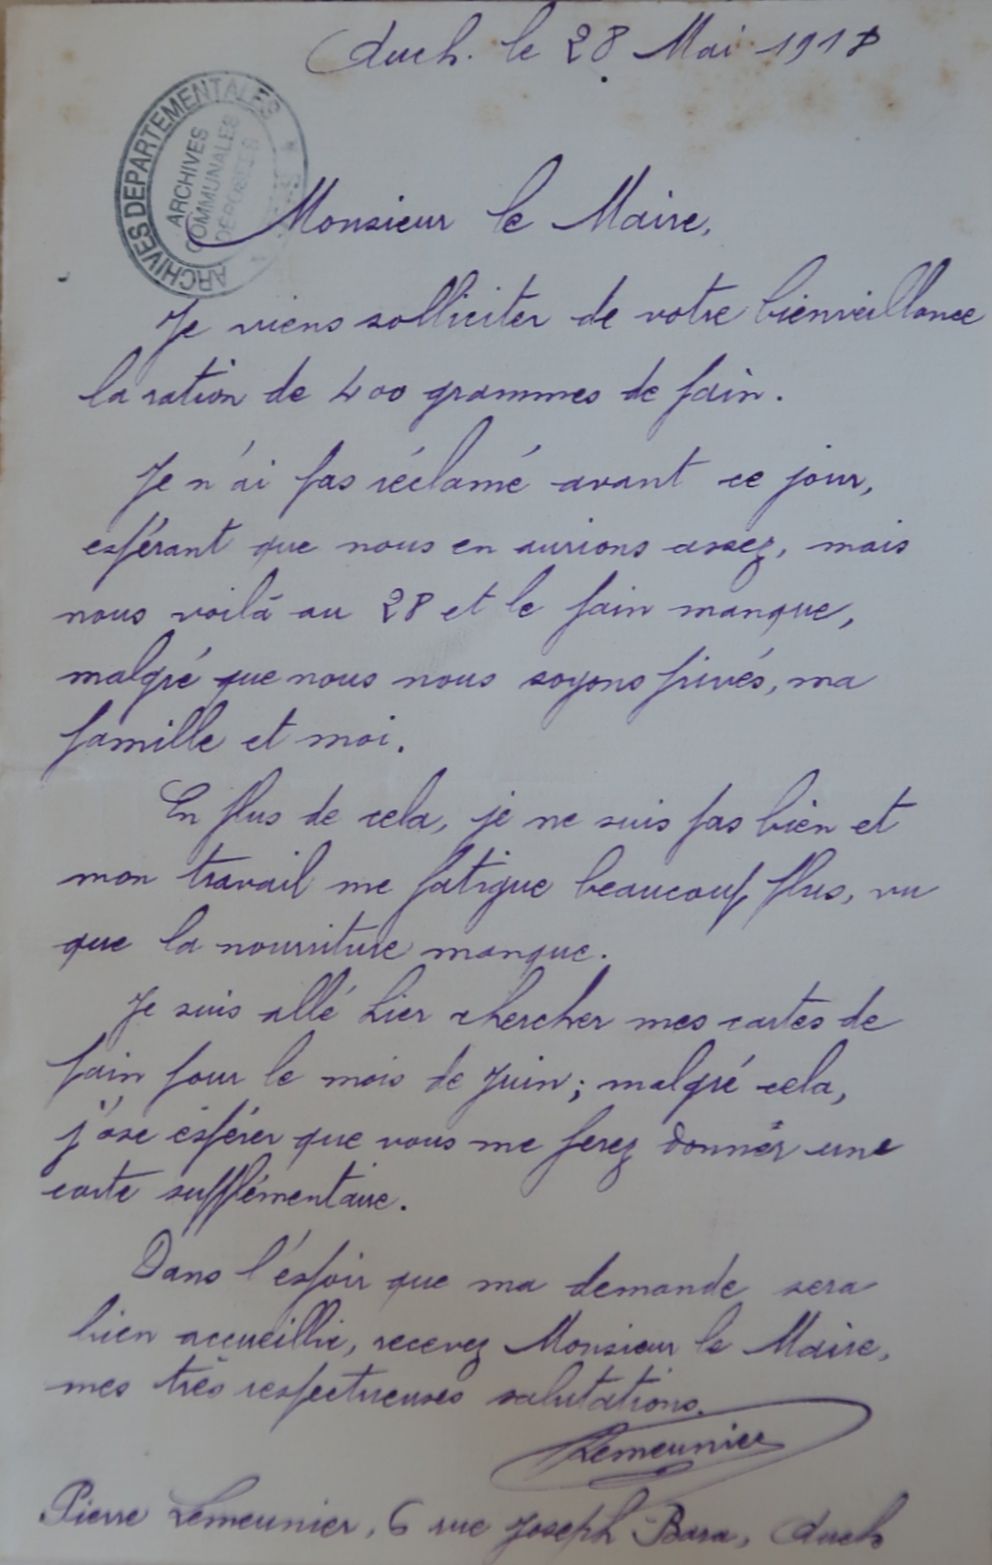 Auch. le 28 Mai 1918
ARCHIVES DEPARTEMENTALES
ARCHIVES
COMMUNALES
DEPOSEES
Monsieur le Maire,
Je viens solliciter de votre bienveillance
la ration de 400 grammes de pain.
Je n'ai pas réclamé avant ce jour,
espérant que nous en aurions assez, mais
nous voilà au 28 et le pain manque,
malgré que nous nous soyons privés, ma
famille et moi.
En plus de cela, je ne suis pas bien et
mon travail me fatigue beaucoup plus, vu
que la nourriture manque.
Je suis allé hier chercher mes cartes de
pain pour le mois de Juin; malgré cela,
j'ose éspérer que vous me ferez donner une
carte supplémentaire.
Dans l'éspoir que ma demande sera
bien accueillie, recevez Monsieur le Maire,
mes très respectueuses salutations.
Lemeunier
Pierre Lemeunier, 6 rue Joseph Bara, Auch